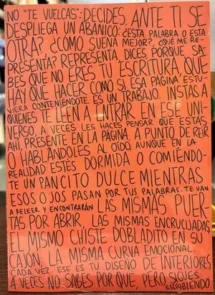 NO "TE VUELCAS": DECIDES. ANTE TI SE
DESPLIEGA UN ABANICO: ¿ESTA PALABRA O ESTA
OTRA? ¿COMO SUENA MEJOR? ¿QUÉ ME RE-
PRESENTA? REPRESENTA, DICES, PORQUE SA-
BES QUE NO ERES TU ESCRITURA, QUE
HAY QUE HACER COMO SI ESA PÁGINA ESTU-
VIERA CONTENIÉNDOTE. ES UN TRABAJO. INSTAS A
QUIENES TE LEEN A ENTRAR EN ESE UNI-
VERSO, A VECES LES HACES PENSAR QUE ESTÁS
AHÍ, PRESENTE EN LA PÁGINA, A PUNTO DE REÍR
O HABLÁNDOLES AL OÍDO AUNQUE EN LA
REALIDAD ESTÉS DORMIDA O COMIÉNDO-
TE UN PANCITO DULCE MIENTRAS
ESOS OJOS PASAN POR TUS PALABRAS. TE VAN
A RELEER Y ENCONTRARÁN LAS MISMAS PUER-
TAS POR ABRIR, LAS MISMAS ENCRUCIJADAS
EL MISMO CHISTE DOBLADITO EN SU
CAJÓN, LA MISMA CURVA EMOCIONAL.
CADA VEZ ESE DISEÑO DE INTERIORES
A VECES NO SABES POR QUÉ, PERO SIGUES
ESCRIBIENDO